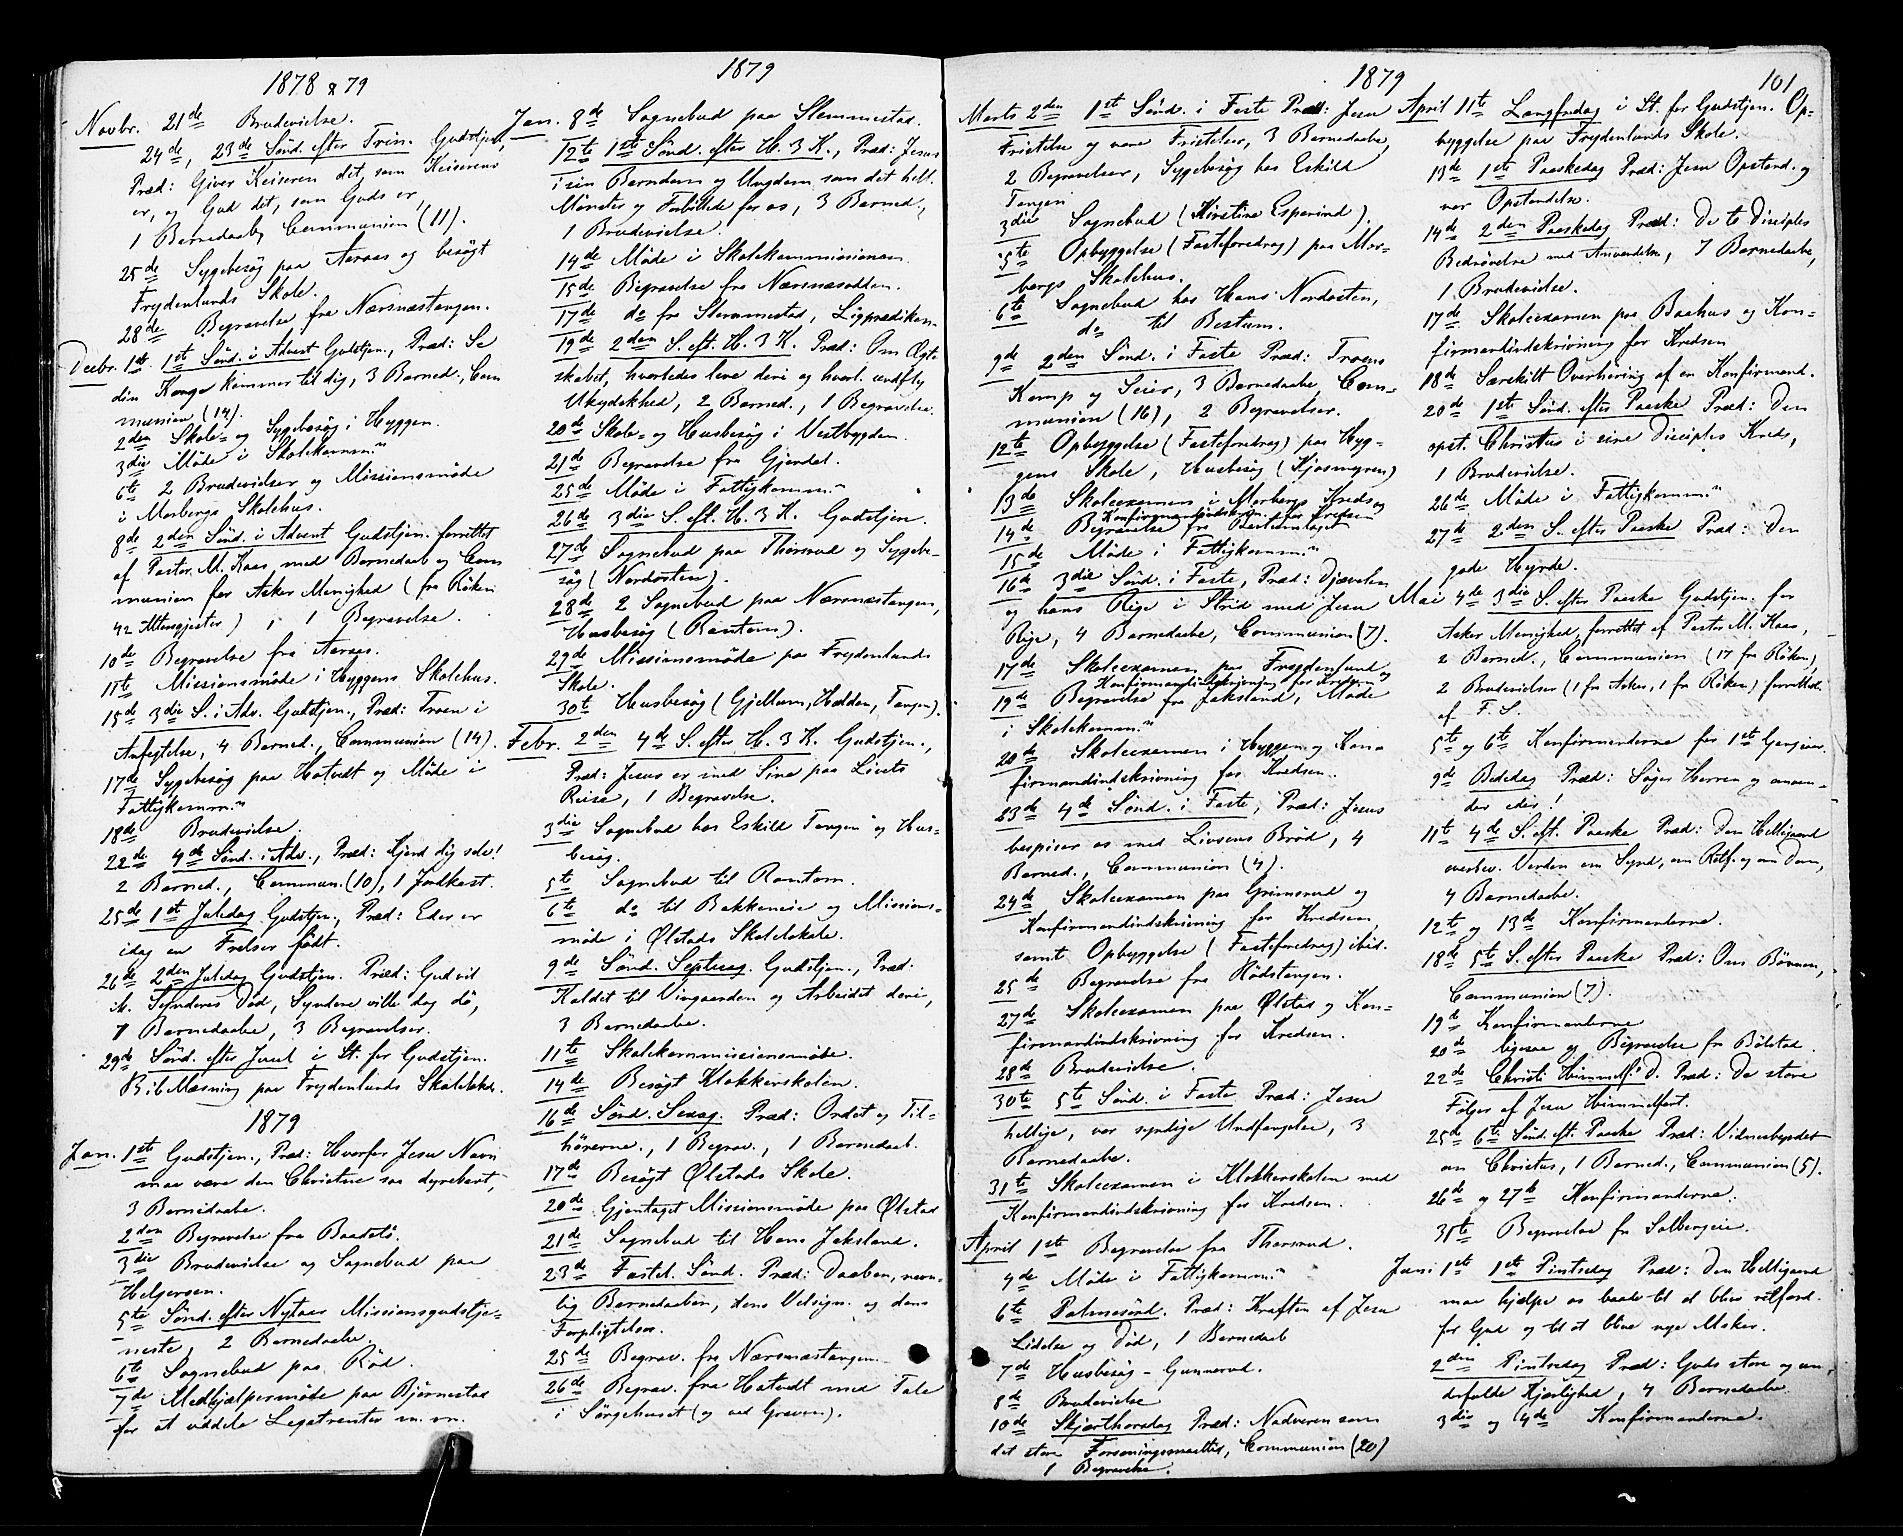 1878 & 79
Novbr. 21de Brudevielse.
24de, 23de Sönd. efter Trin. Gudstjen.,
Præd: Giver Keiseren det, som Keiserens
er, og Gud det, som Guds er,
1 Barnedaab, Communion (11).
25de Sygebesøg paa Aaraas og besøgt
Frydenlunds Skole.
28de Begravelse fra Nærsnæstangen.
Decbr. 1st. 1st Sönd. i Advent Gudstjen., Præd: Se
din Konge kommer til dig, 3 Barned., Com
munion (14).
2den Skole- og Sygebesøg i Hyggen.
3die Møde i Skolekomm.n
6te 2 Brudevielser og Missionsmøde
i Morbergs Skolehus.
8de 2den Sönd. i Advent Gudstjen. forrettet
af Pastor M. Kaas med Barnedaab og Com
munion for Asker Menighed (fra Röken
42 Altergjester), 1 Begravelse.
10de Begravelse fra Aaraas.
11te Missionsmøde i Hyggens Skolehus.
15de 3die S. i Adv. Gudstjen., Præd: Troen i
Anfegtelse, 4 Barned., Communion (14).
17de Sygebesøg paa Hotvedt og Møde i
Fattigkomm.n
18de Brudevielse.
22de 4de Sönd. i Adv., Præd: Kjend dig selv!
2 Barned., Commun. (10), 1 Jordkast.
25de 1st Juledag Gudstjen., Præd: Eder er
idag en Frelser født.
26de 2den Juledag Gudstjen. Præd: Gud vil
ik. Synderes Død, Syndere ville dog dö,
7 Barnedaabe, 3 Begravelser.
29de Sönd. efter Juul i St. for Gudstjen.
Bibellæsning paa Frydenlunds Skolelokale.
1879
Jan. 1ste Gudstjen., Præd: Hvorfor Jesu Navn
maa være den Christne saa dyrebart,
3 Barnedaabe.
2den Begravelse fra Baadstö.
3die Brudevielse og Sognebud paa
Helgersen.
5te Sönd. efter Nytaar Missionsgudstje-
neste, 2 Barnedaabe.
6te Sognebud paa Röd.
7de Medhjælpermøde paa Bjørnestad
for at uddele Legatrenter m. m.
1879
Jan. 8de Sognebud paa Slemmestad.
12te 1ste Sönd. efter H. 3 K., Præd: Jesus
i sin Barndom og Ungdom som det hell.
Mönster og Forbillede for os, 3 Barned.,
1 Brudevielse.
14de Møde i Skolekommissionen.
15de Begravelse fra Nærsnæsodden.
17de do fra Slemmestad, Ligprædiken.
19de 2den S. eft. H. 3 K. Præd: Om Ægt-
skabet, hvorledes leve deri og hvorl. undfly
Ukydskhed, 2 Barned., 1 Begravelse.
20de Skole- og Husbesøg i Vestbygden.
21de Begravelse fra Gjerdal.
25de Møde i Fattigkomm.n
26de 3die S. eft. H. 3 K. Gudstjen.
27de Sognebud paa Thorsrud og Sygebe-
søg (Nordosten).
28de 2 Sognebud paa Nærsnæstangen,
Husbesøg (Rortom).
29de Missionsmøde paa Frydenlunds
Skole.
30te Husbesøg (Gjellum, Hødden, Tangen).
Febr. 2den 4de S. efter H. 3 K. Gudstjen.,
Præd: Jesus er med Sine paa Livets
Reise, 1 Begravelse.
3die Sognebud hos Eskild Tangen og Hus-
besøg.
5te Sognebud til Rortom.
6te do til Bakkeneie og Missions-
møde i Ølstads Skolelokale.
9de Sönd. Septuag. Gudstjen., Præd.
Kaldet til Vingaarden og Arbeidet deri,
3 Barnedaabe.
11te Skolekommissionsmøde.
14de Besøgt Klokkerskolen.
16de Sönd. Sexag. Præd: Ordet og Til-
hörerne, 1 Begrav., 1 Barnedaab.
17de Besøgt Ølstads Skole.
20de Gjentaget Missionsmøde paa Ølstad
21de Sognebud til Hans Jaksland.
23de Fastel. Sönd. Præd: Daaben, navn-
lig Barnedaaben, dens Velsign. og dens
Forpligtelser.
25de Begrav. fra Nærsnæstangen.
26de Begrav. fra Hotvedt med Tale
i Sørgehuset (og ved Graven).
1879
Marts 2den 1st Sönd. i Faste Præd: Jesu
Fristelse og vore Fristelser, 3 Barnedaabe,
2 Begravelser, Sygebesøg hos Eskild
Tangen
3die Sognebud (Kirstine Espernd).
5te Opbyggelse (Fasteforedrag) paa Mor-
bergs Skolehus.
6te Sognebud hos Hans Nordosten,
do til Bestum.
9de 2den Sönd. i Faste Præd: Troens
Kamp og Seier, 3 Barnedaabe, Com-
munion (16), 2 Begravelser.
12te Opbyggelse (Fasteforedrag) paa Hyg-
gens Skole, Husbesøg (Kjosmyren)
13de Skoleexamen i Morbergs Kreds og
Konfirmandindskrivn. for Kredsen
14de Begravelse fra
15de Møde i Fattigkomm.n
16de 3die Sönd. i Faste, Præd: Djævelen
og hans Rige i Strid med Jesu
Rige, 4 Barnedaabe, Communion (7).
17de Skoleexamen paa Frydenlund og
Konfirmandindskrivning for Kredsen
19de Begravelse fra Jaksland, Møde
i Skolekomm.n
20de Skoleexamen i Hyggen og Kon-
firmandindskrivning for Kredsen.
23de 4de Sönd. i Faste, Præd: Jesus
bespiser os med Livsens Bröd, 4
Barned., Communion (4).
24de Skoleexamen paa Grimsrud og
Konfirmandindskrivning for Kredsen
samt Opbyggelse (Fasteforedrag) ibid.
25de Begravelse fra Rødstangen.
27de Skoleexamen paa Ølstad og Kon-
firmandindskrivning for Kredsen.
28de Brudevielse.
30te 5te Sönd. i Faste Præd: Jesu
hellige, vor syndige Undfangelse, 3
Barnedaabe.
31te Skoleexamen i Klokkerskolen med
Konfirmandindskrivning for Kredsen.
April 1ste Begravelse fra Thorsrud.
4de Møde i Fattigkomm.n
6te Palmesönd. Præd: Kraften af Jesu
Lidelse og Död, 1 Barnedaab
7de Husbesøg - Gunnerud.
8de Brudevielse
10de Skjærthorsdag Præd: Nadveren som
det store Forsoningsmaaltid, Communion (20)
1 Begravelse.
101
April 11te Langfredag i St. for Gudstjen. Op-
byggelse paa Frydenlunds Skole.
13de 1ste Paaskedag Præd: Jesu Opstand. og
vor Opstandelse.
14de 2den Paaskedag Præd: De to Disciples
Bedrövelse med Anvendelse, 7 Barnedaabe,
1 Brudevielse.
17de Skoleexamen paa Baahus og Kon-
firmandindskrivning for Kredsen
18de Særskilt Overhøring af en Konfirmand.
20de 1ste Sönd. efter Paaske Præd: Den
opst. Christus i sine Disciples Kreds,
1 Brudevielse.
26de Møde i Fattigkomm.n
27de 2den S. efter Paaske Præd: Den
gode Hyrde.
Mai 4de 3die S. efter Paaske Gudstjen. for
Asker Menighed, forrettet af Pastor M. Kaas,
2 Barned., Communion (17 fra Röken),
2 Brudevielser (1 fra Asker, 1 fra Röken) forrettet
af F. S.
5te og 6te Konfirmanderne for 1ste Gang
9de Bededag Præd: Søger Herren og omven-
der der!
11te 4de S. eft. Paaske Præd: Den Helligaand
overbev. Verden om Synd, om Retf. og om Dom,
4 Barnedaabe.
12te og 13de Konfirmanderne.
18de 5te S. efter Paaske Præd: Om Bönnen,
Communion (7).
19de Konfirmanderne
20de ligesaa og Begravelse fra Bölstad.
22de Christi Himmelf.s D. Præd: De store
Følger af Jesu Himmelfart.
25de 6te Sönd. eft. Paaske Præd: Vidnesbyrdet
om Christus, 1 Barned., Communion (5).
26de og 27de Konfirmanderne.
31te Begravelse fra Solbergeie.
Juni 1ste 1ste Pintsedag Præd: Den Helligaand
maa hjælpe os baade til at blive retfærd.
for Gud og til at blive nye Msker.
2den Pintsedag Præd: Guds store og un
derfulde Kjærlighed, 4 Barnedaabe.
3die og 4de Konfirmanderne.